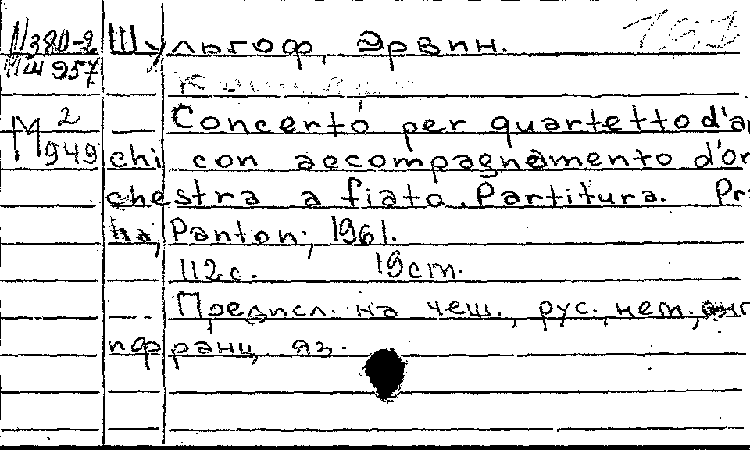 Шульгоф, Эрвин.
Ш957
Concerto per quartetto d'ar
M 2
949
chi con accompagnamento d'or
chestra a fiato. Partitura. Pr
ha, Panton, 1961.
112 с. 19 cm.
Предисл. на чеш., рус., нем., анг
и франц. яз.